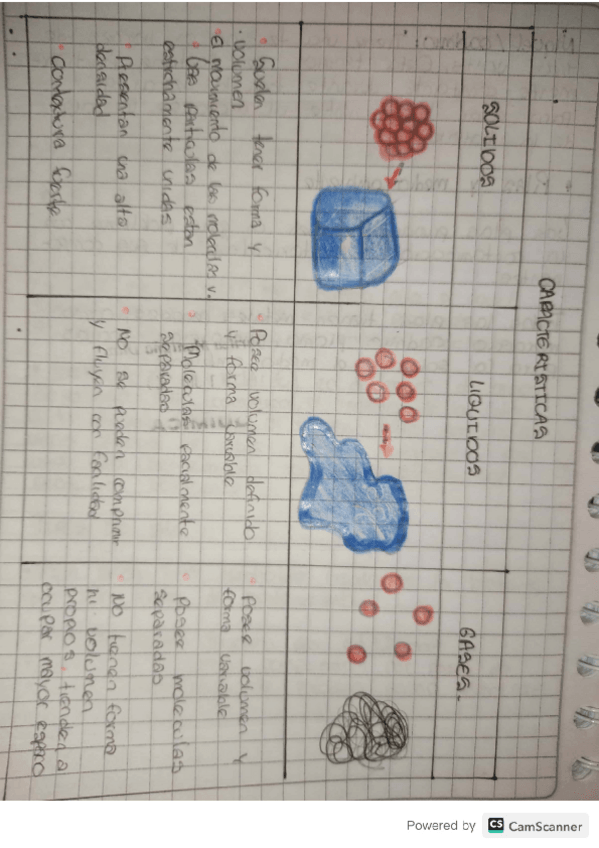 CARACTERISTICAS
SOLIDOS
LIQUIDOS
GASES.
• Suelen tener forma y
• volumen
• El movimiento de las moleculas v.
• las particulas estan
estrechamente unidas
• Presentan una alta
densidad
• contextura fuerte
• Posee volumen definido
y forma variable
• Moleculas parcialmente
separadas
• No se pueden comprimir
y fluyen con facilidad
• Posee volumen y
forma variable
• Poseer moleculas
separadas
• No tienen forma
ni volumen
propios, tienden a
ocupar mayor espacio
Powered by CS CamScanner